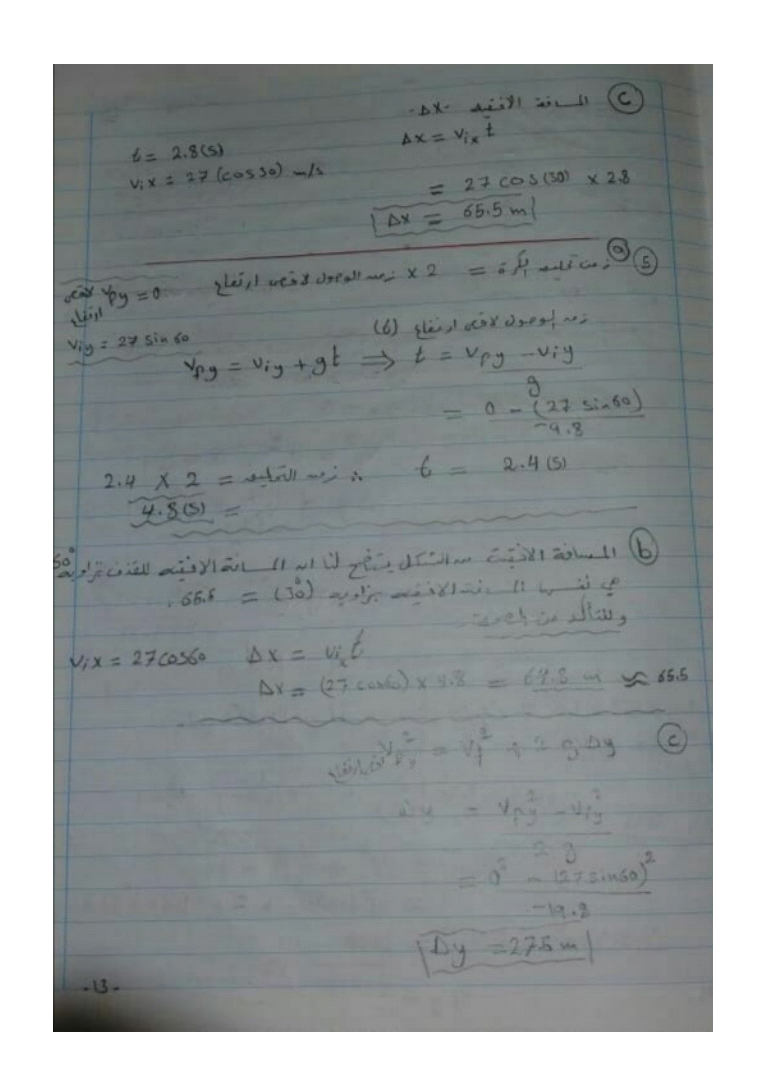 ⓒ المسافة الافقيه -Δx-
Δx = vix t
t = 2.8(s)
vix = 27 (cos30) m/s
= 27 cos(30) × 2.8
Δx = 65.5 m
⑤ ⓐ زمن تحليق الكرة = 2 × زمن الوصول لاقصى ارتفاع
vpy = 0 لاقصى
ارتفاع
viy = 27 sin 60
زمن الوصول لاقصى ارتفاع (t)
vpy = viy + gt ⟹ t = vpy - viy
g
= 0 - (27 sin60)
-9.8
t = 2.4 (s) ∴ زمن التحليق = 2 × 2.4
= 4.8(s)
ⓑ المسافة الافقية من الشكل يتضح لنا ان المسافة الافقيه للقذف بزاويه 60°
هي نفسها المسافة الافقيه بزاويه (30°) = 65.5.
وللتأكد من
vix = 27cos60 Δx = vix t
Δx = (27 cos60) × 4.8 = 64.8 m ≈ 65.5
ⓒ vpy² = viy² + 2gΔy
Δy = vpy² - viy²
2g
= 0² - (27sin60)²
-19.8
Δy = 27.5 m
-13-